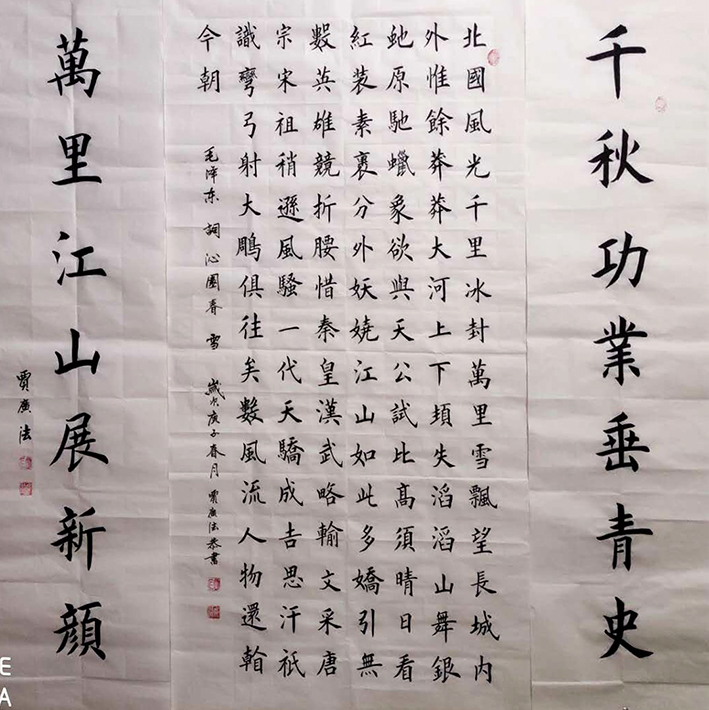 千秋功業垂青史
北國風光千里冰封萬里雪飄望長城内
外惟餘莽莽大河上下頓失滔滔山舞銀
虵原馳蠟象欲與天公試比高須晴日看
紅装素裹分外妖嬈江山如此多嬌引無
數英雄競折腰惜秦皇漢武略輸文采唐
宗宋祖稍遜風騷一代天驕成吉思汗祇
識彎弓射大鵰俱往矣數風流人物還看
今朝
毛泽东 詞 沁園春 雪 歲次庚子春月 賈廣法恭書
萬里江山展新顔
賈廣法
E
A